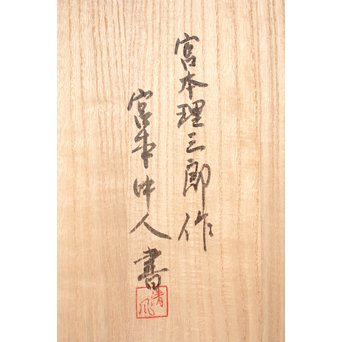 宮本理三郎作
宮本中人書